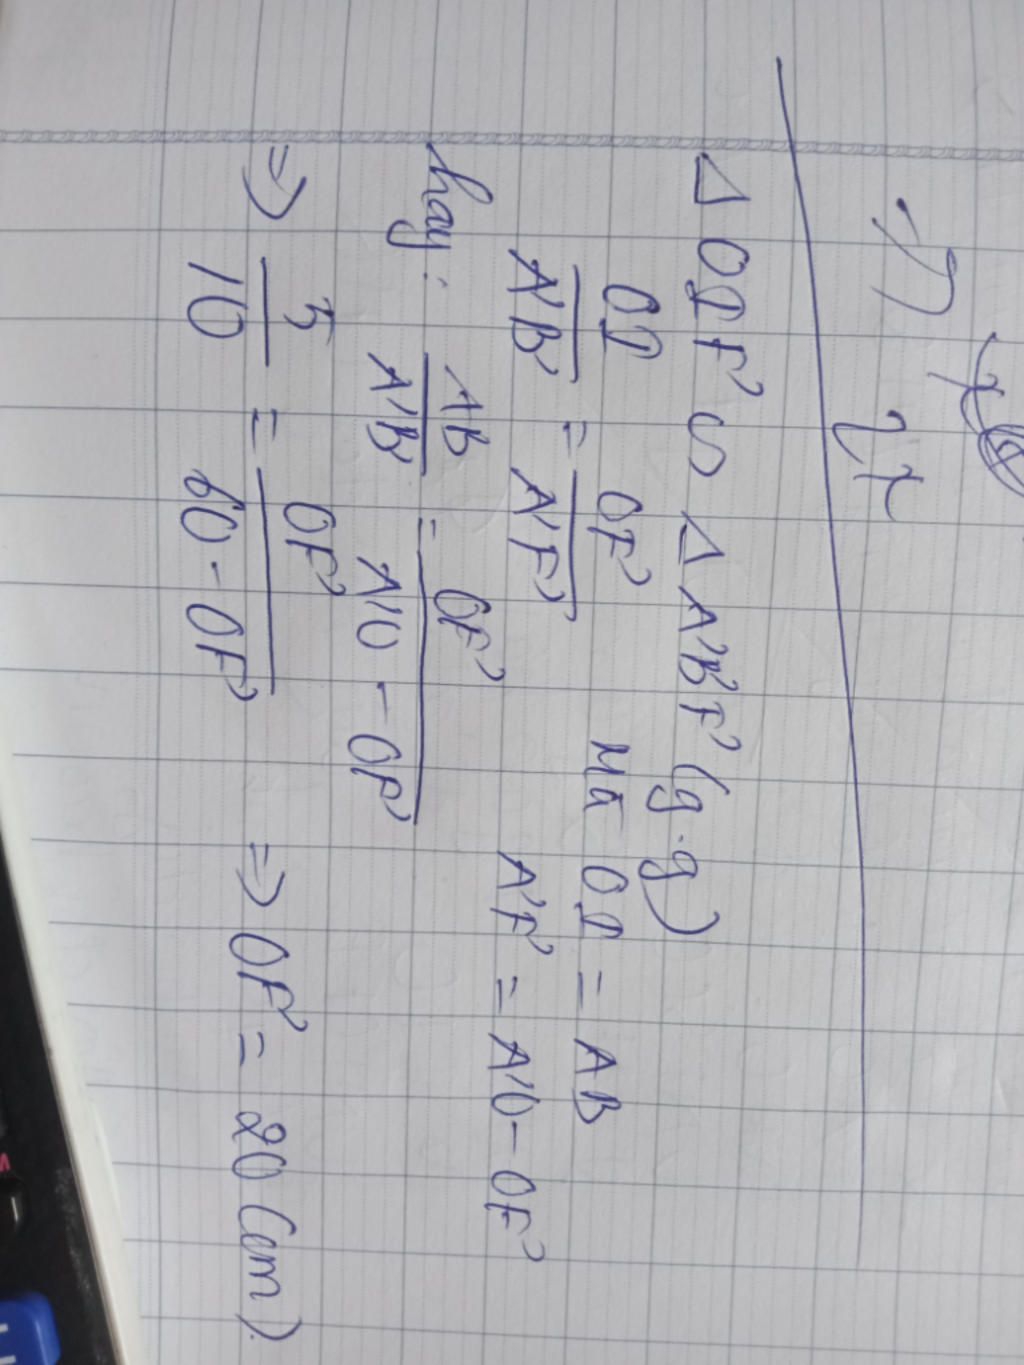 => x
2x
Δ OIF' ∽ Δ A'B'F' (g.g)
OI / A'B' = OF' / A'F' Mà OI = AB
A'F' = A'O - OF'
hay: AB / A'B' = OF' / A'O - OF'
=> 5 / 10 = OF' / 60 - OF' => OF' = 20 (cm).